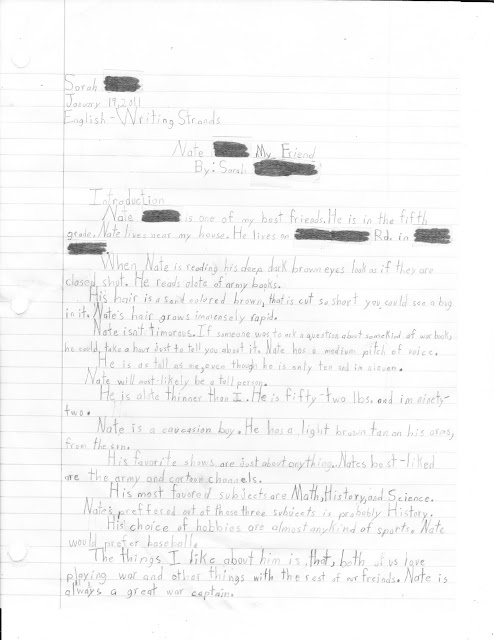 Sarah
January 19, 2011
English-Writing Strands
Nate My Friend
By: Sarah
Introduction
Nate is one of my best friends. He is in the fifth
grade. Nate lives near my house. He lives on Rd. in
When Nate is reading his deep dark brown eyes look as if they are
closed shut. He reads alote of army books.
His hair is a sand colored brown, that is cut so short you could see a bug
in it. Nate's hair grows immensely rapid.
Nate isn't timorous. If someone was to ask a question about somekind of war book,
he could, take a hour just to tell you about it. Nate has a medium pitch of voice.
He is as tall as me, even though he is only ten and im eleven.
Nate will most-likely be a tall person.
He is alote thinner than I. He is fifty-two lbs. and im ninety-
two.
Nate is a caucasion boy. He has a light brown tan on his arms,
from the sun.
His favorite shows are just about anything. Nates best-liked
are the army and cartoon channels.
His most favored subjects are Math, History, and Science.
Nate's preffered out of those three subjects is probably History.
His choice of hobbies are almost anykind of sports. Nate
would prefer baseball.
The things I like about him is, that, both of us love
playing war and other things with the rest of our freinds. Nate is
always a great war captain.